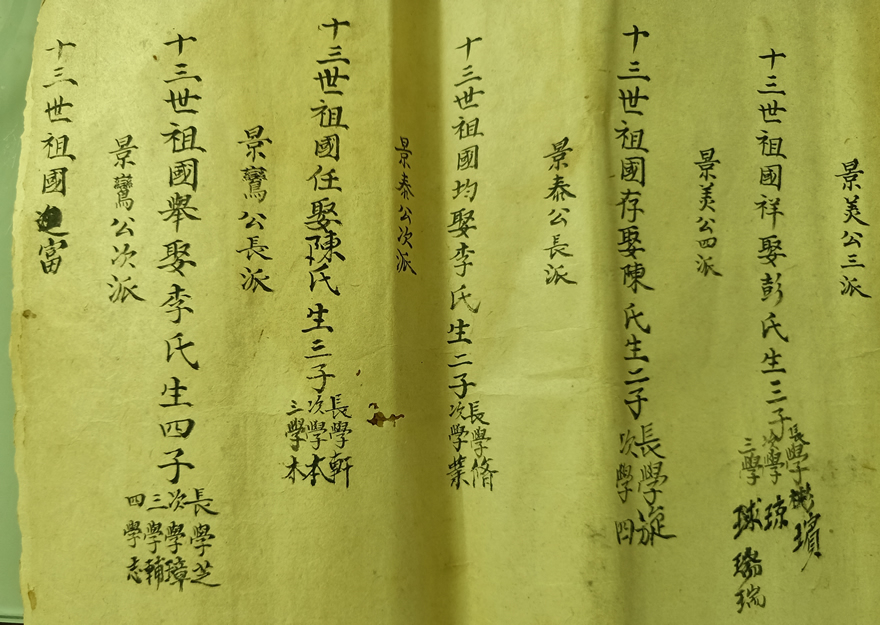 景美公三派
十三世祖國祥娶彭氏生三子
長學彬
次學琼
三學球
璸
瑞
景美公四派
十三世祖國存娶陳氏生二子
長學旋
次學四
景泰公長派
十三世祖國均娶李氏生二子
長學脩
次學業
景泰公次派
十三世祖國任娶陳氏生三子
長學軒
次學本
三學木
景鸞公長派
十三世祖國舉娶李氏生四子
長學芝
次學璋
三學輔
四學志
景鸞公次派
十三世祖國富